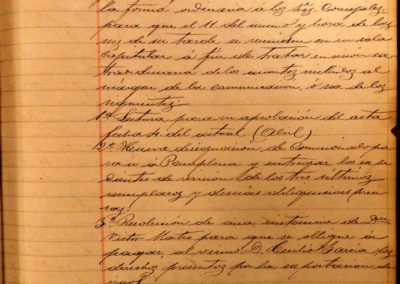 la forma ordinaria a los Sres. Concejales
para que el 11 del mismo y hora de las
de la tarde se reunirán en su sala
capitular a fin de tratar en sesión ex
traordinaria de los asuntos
margen de la comunicación, ó sea de los
siguientes:
1º Lectura para su aprobación del acta
fecha 4 del actual (Abril)
2º Nueva designación de Comisionado pa
ra ir á Pamplona y entregar los expe
dientes de revisión de los tres últimos
reemplazos y demás diligencias
3º Resolución de una instancia de Dn
Victor para que se obligue á
pagar, al vecino D. Cecilio Garcia los
derechos por la exportación de